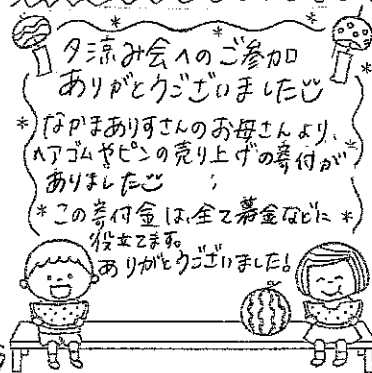 夕涼み会へのご参加
ありがとうございました
ながまありすさんのお母さんより、
ヘアゴムやピンの売り上げの寄付が
ありました
この寄付金は、全て募金などに
役立てます。
ありがとうございました!